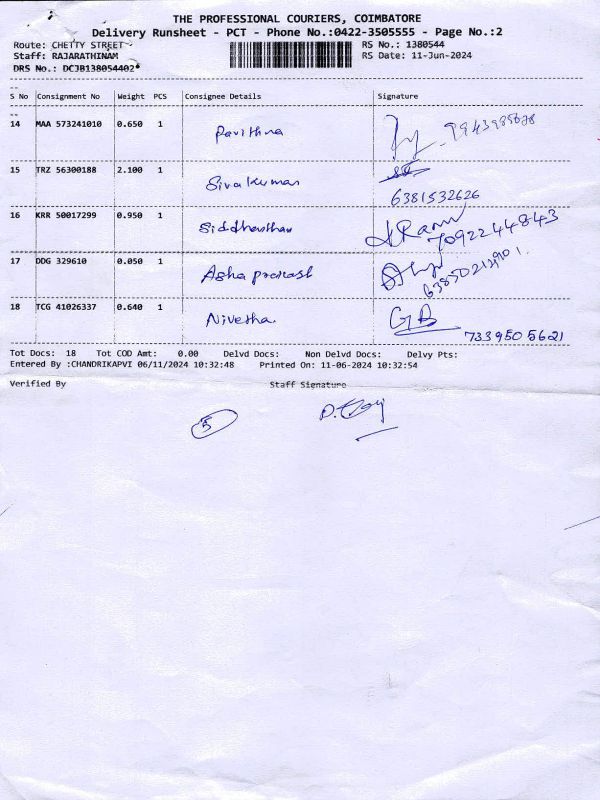 THE PROFESSIONAL COURIERS, COIMBATORE
Delivery Runsheet - PCT - Phone No.:0422-3505555 - Page No.:2
Route: CHETTY STREET RS No.: 1380544
Staff: RAJARATHINAM RS Date: 11-Jun-2024
DRS No.: DCJB138054402
S No Consignment No Weight PCS Consignee Details Signature
14 MAA 573241010 0.650 1 Pavithna
15 TRZ 56300188 2.100 1 Sivakumar
6381532626
16 KRR 50017299 0.950 1 Siddhavthan
7092244843
17 DDG 329610 0.050 1 Asha prakash
18 TCG 41026337 0.640 1 Nivetha GB
7339505621
Tot Docs: 18 Tot COD Amt: 0.00 Delvd Docs: Non Delvd Docs: Delvy Pts:
Entered By :CHANDRIKAPVI 06/11/2024 10:32:48 Printed On: 11-06-2024 10:32:54
Verified By Staff Signature
5